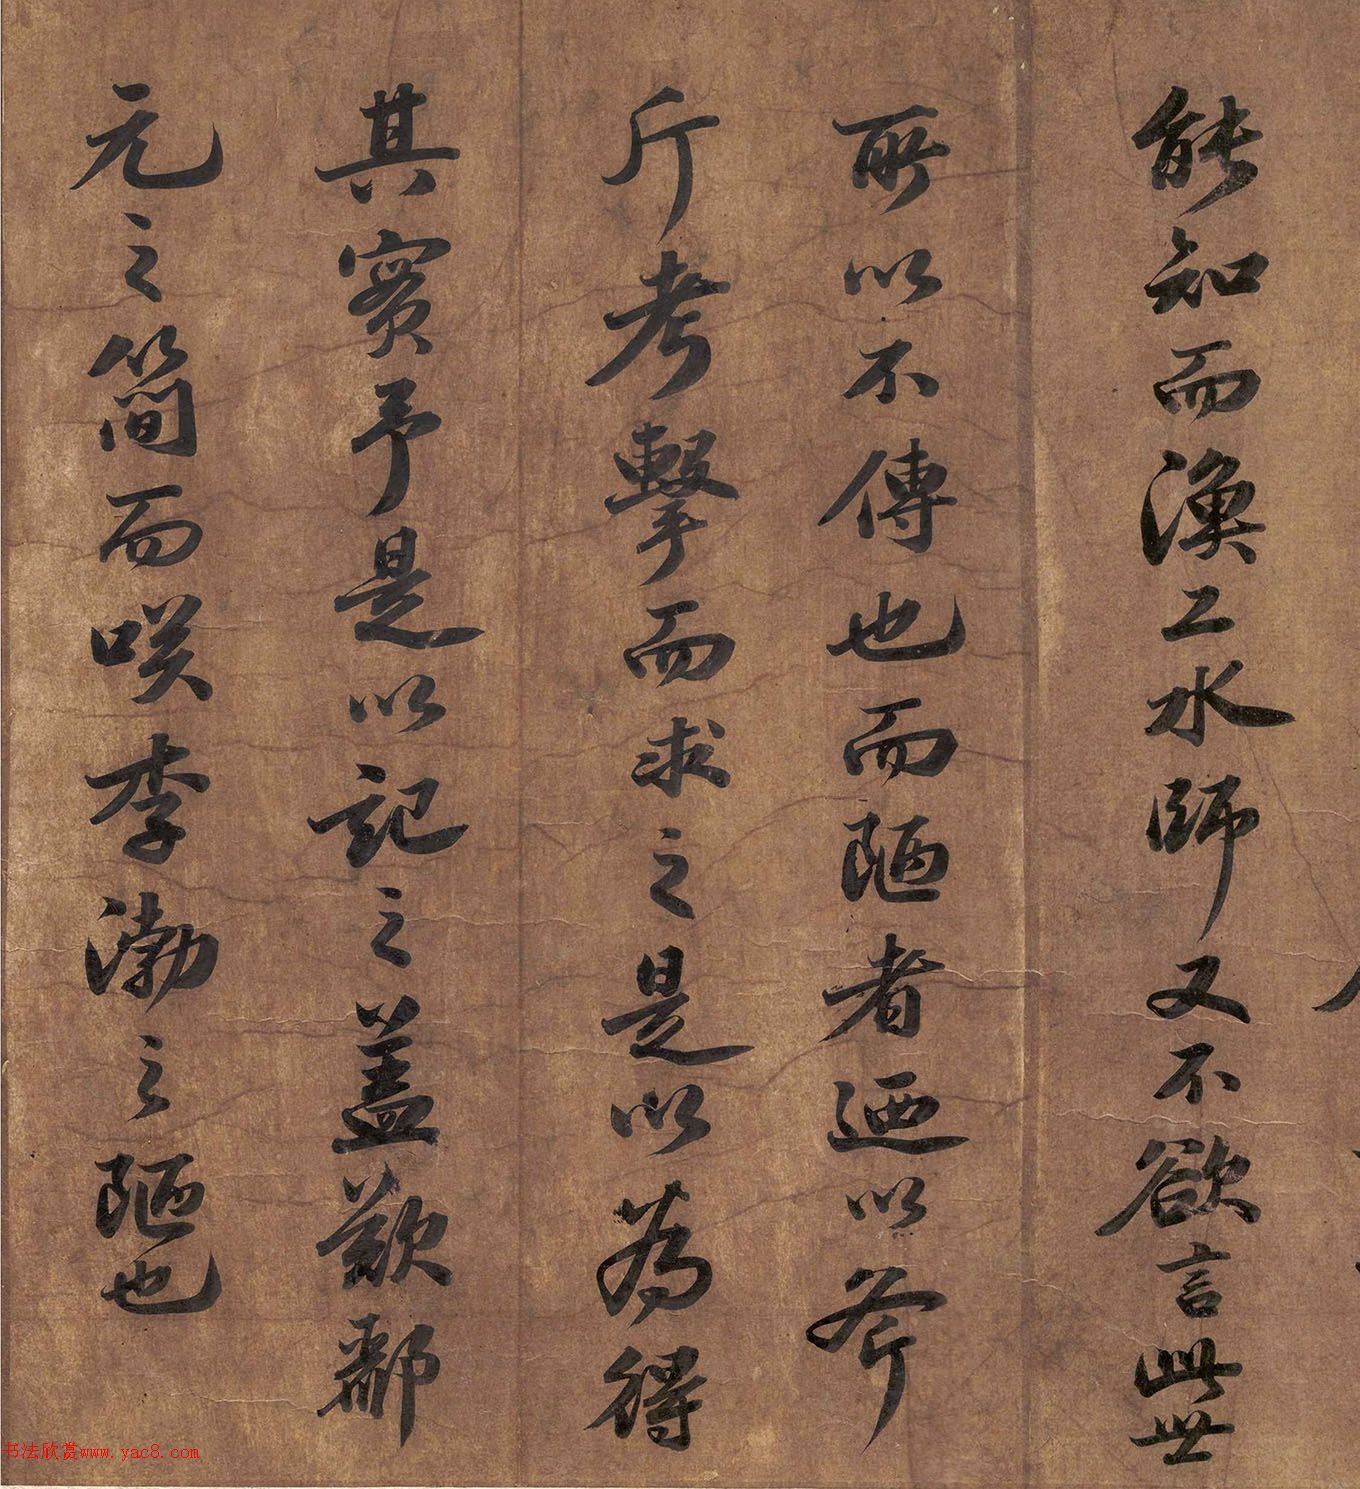 能知而漁工水師又不欲言此世
所以不傳也而陋者迺以斧
斤考擊而求之是以為得
其實予是以記之蓋歎酈
元之簡而咲李渤之陋也
书法欣赏www.yac8.com